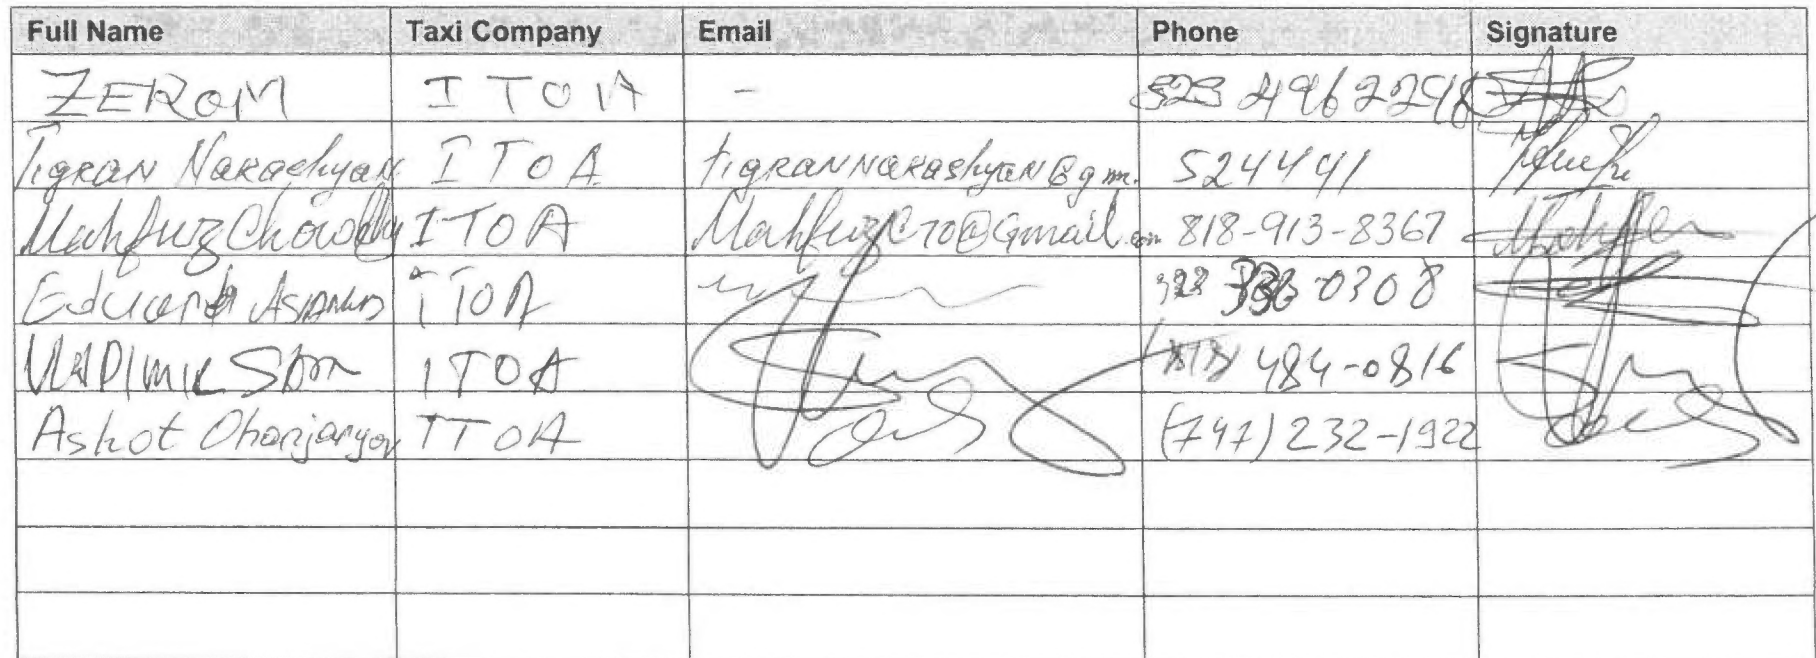 Full Name Taxi Company Email Phone Signature
ZEROM ITOA - 323 4962298
Tigran Narashyan ITOA tigrannarashyan@gm. 524441
Mahfuz Chowdhy ITOA Mahfuzc70@Gmail.com 818-913-8367
ITOA 0308
VLADIMIR ITOA (818) 484-0816
Ashot Ohanjanyan ITOA (747) 232-1922